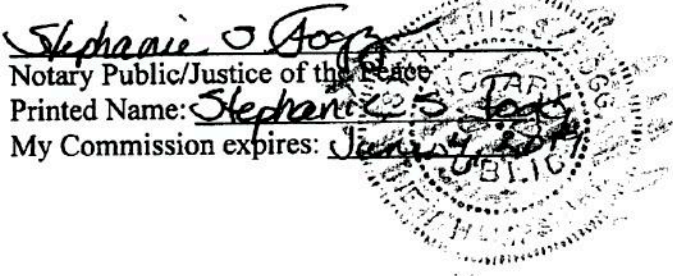 Stephanie S Fogg
Notary Public/Justice of the Peace
Printed Name: Stephanie S. Fogg
My Commission expires: 2019
NOTARY
PUBLIC